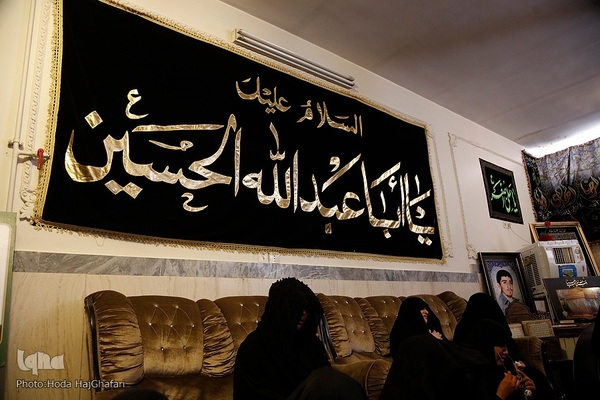 السلام علیک
یا أبا عبدالله الحسین ع
iqna
Photo:Hoda HajGhafari